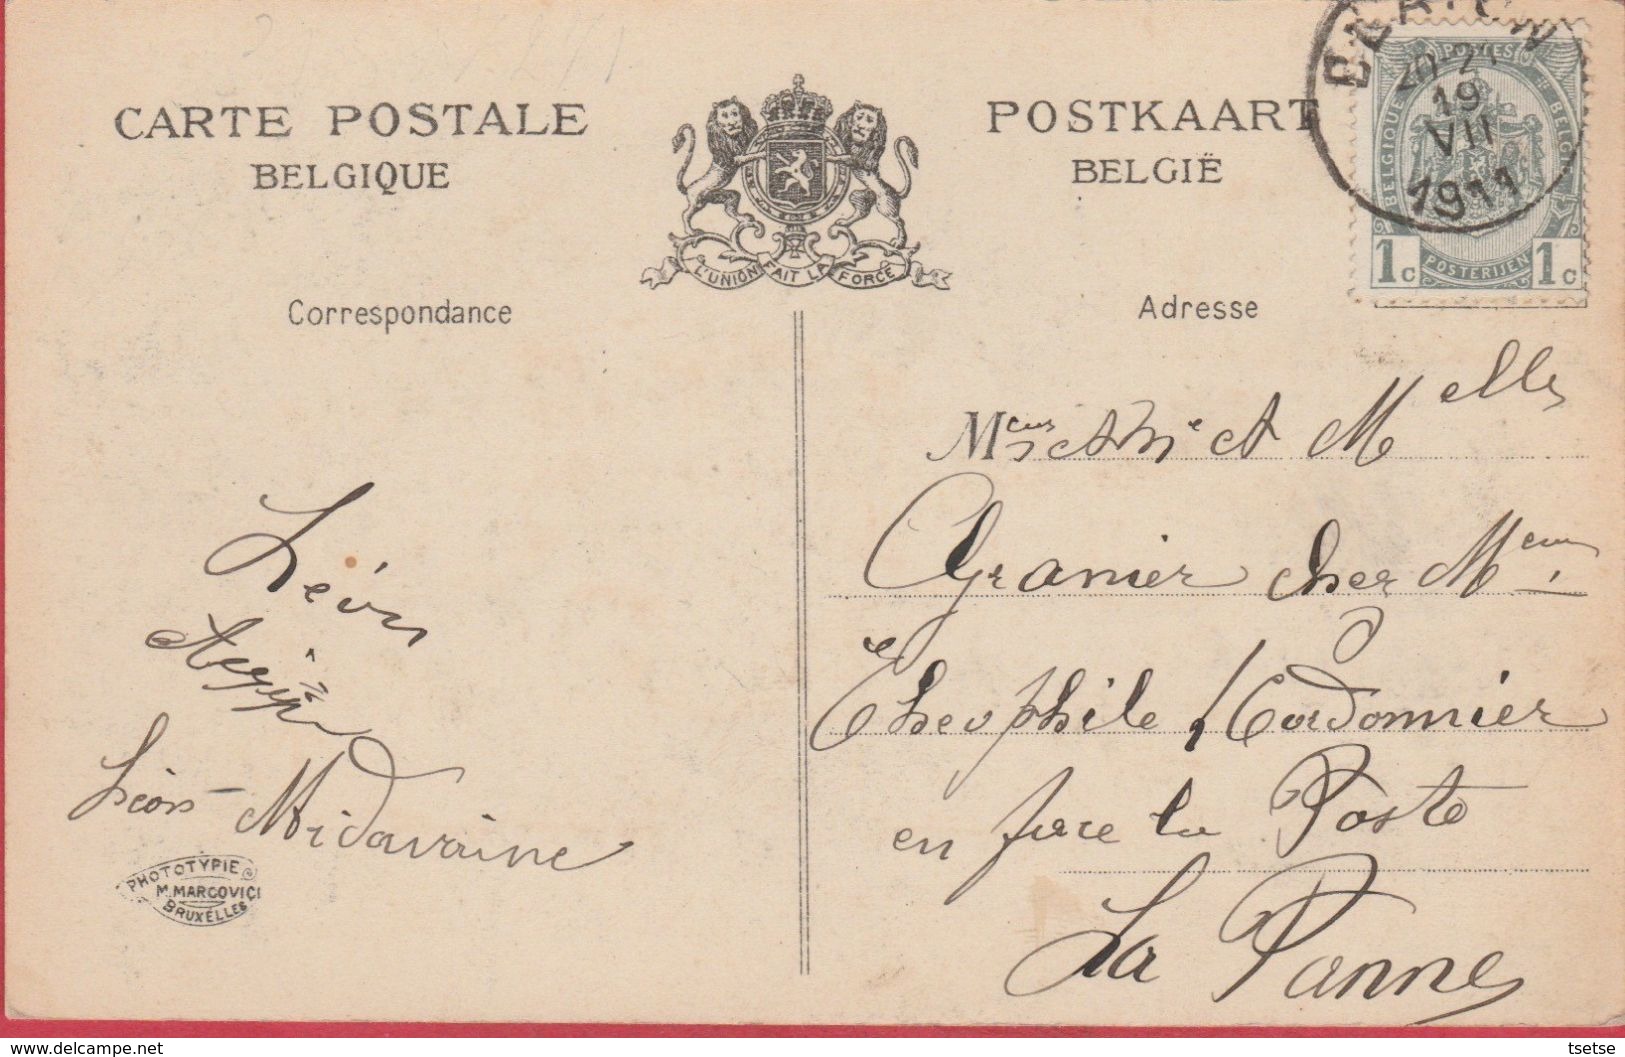 CARTE POSTALE
BELGIQUE
POSTKAART
BELGIË
L'UNION FAIT LA FORCE
20-21
19
VII
1911
POSTES
BELGIQUE
BELGIË
1c POSTERIJEN 1c
Correspondance
Adresse
Melles
Granier chez Mme
Theophile Cordonnier
en face la Poste
La Panne
Léon
Léon Midavaine
PHOTOTYPIE
M. MARCOVICI
BRUXELLES
tsetse